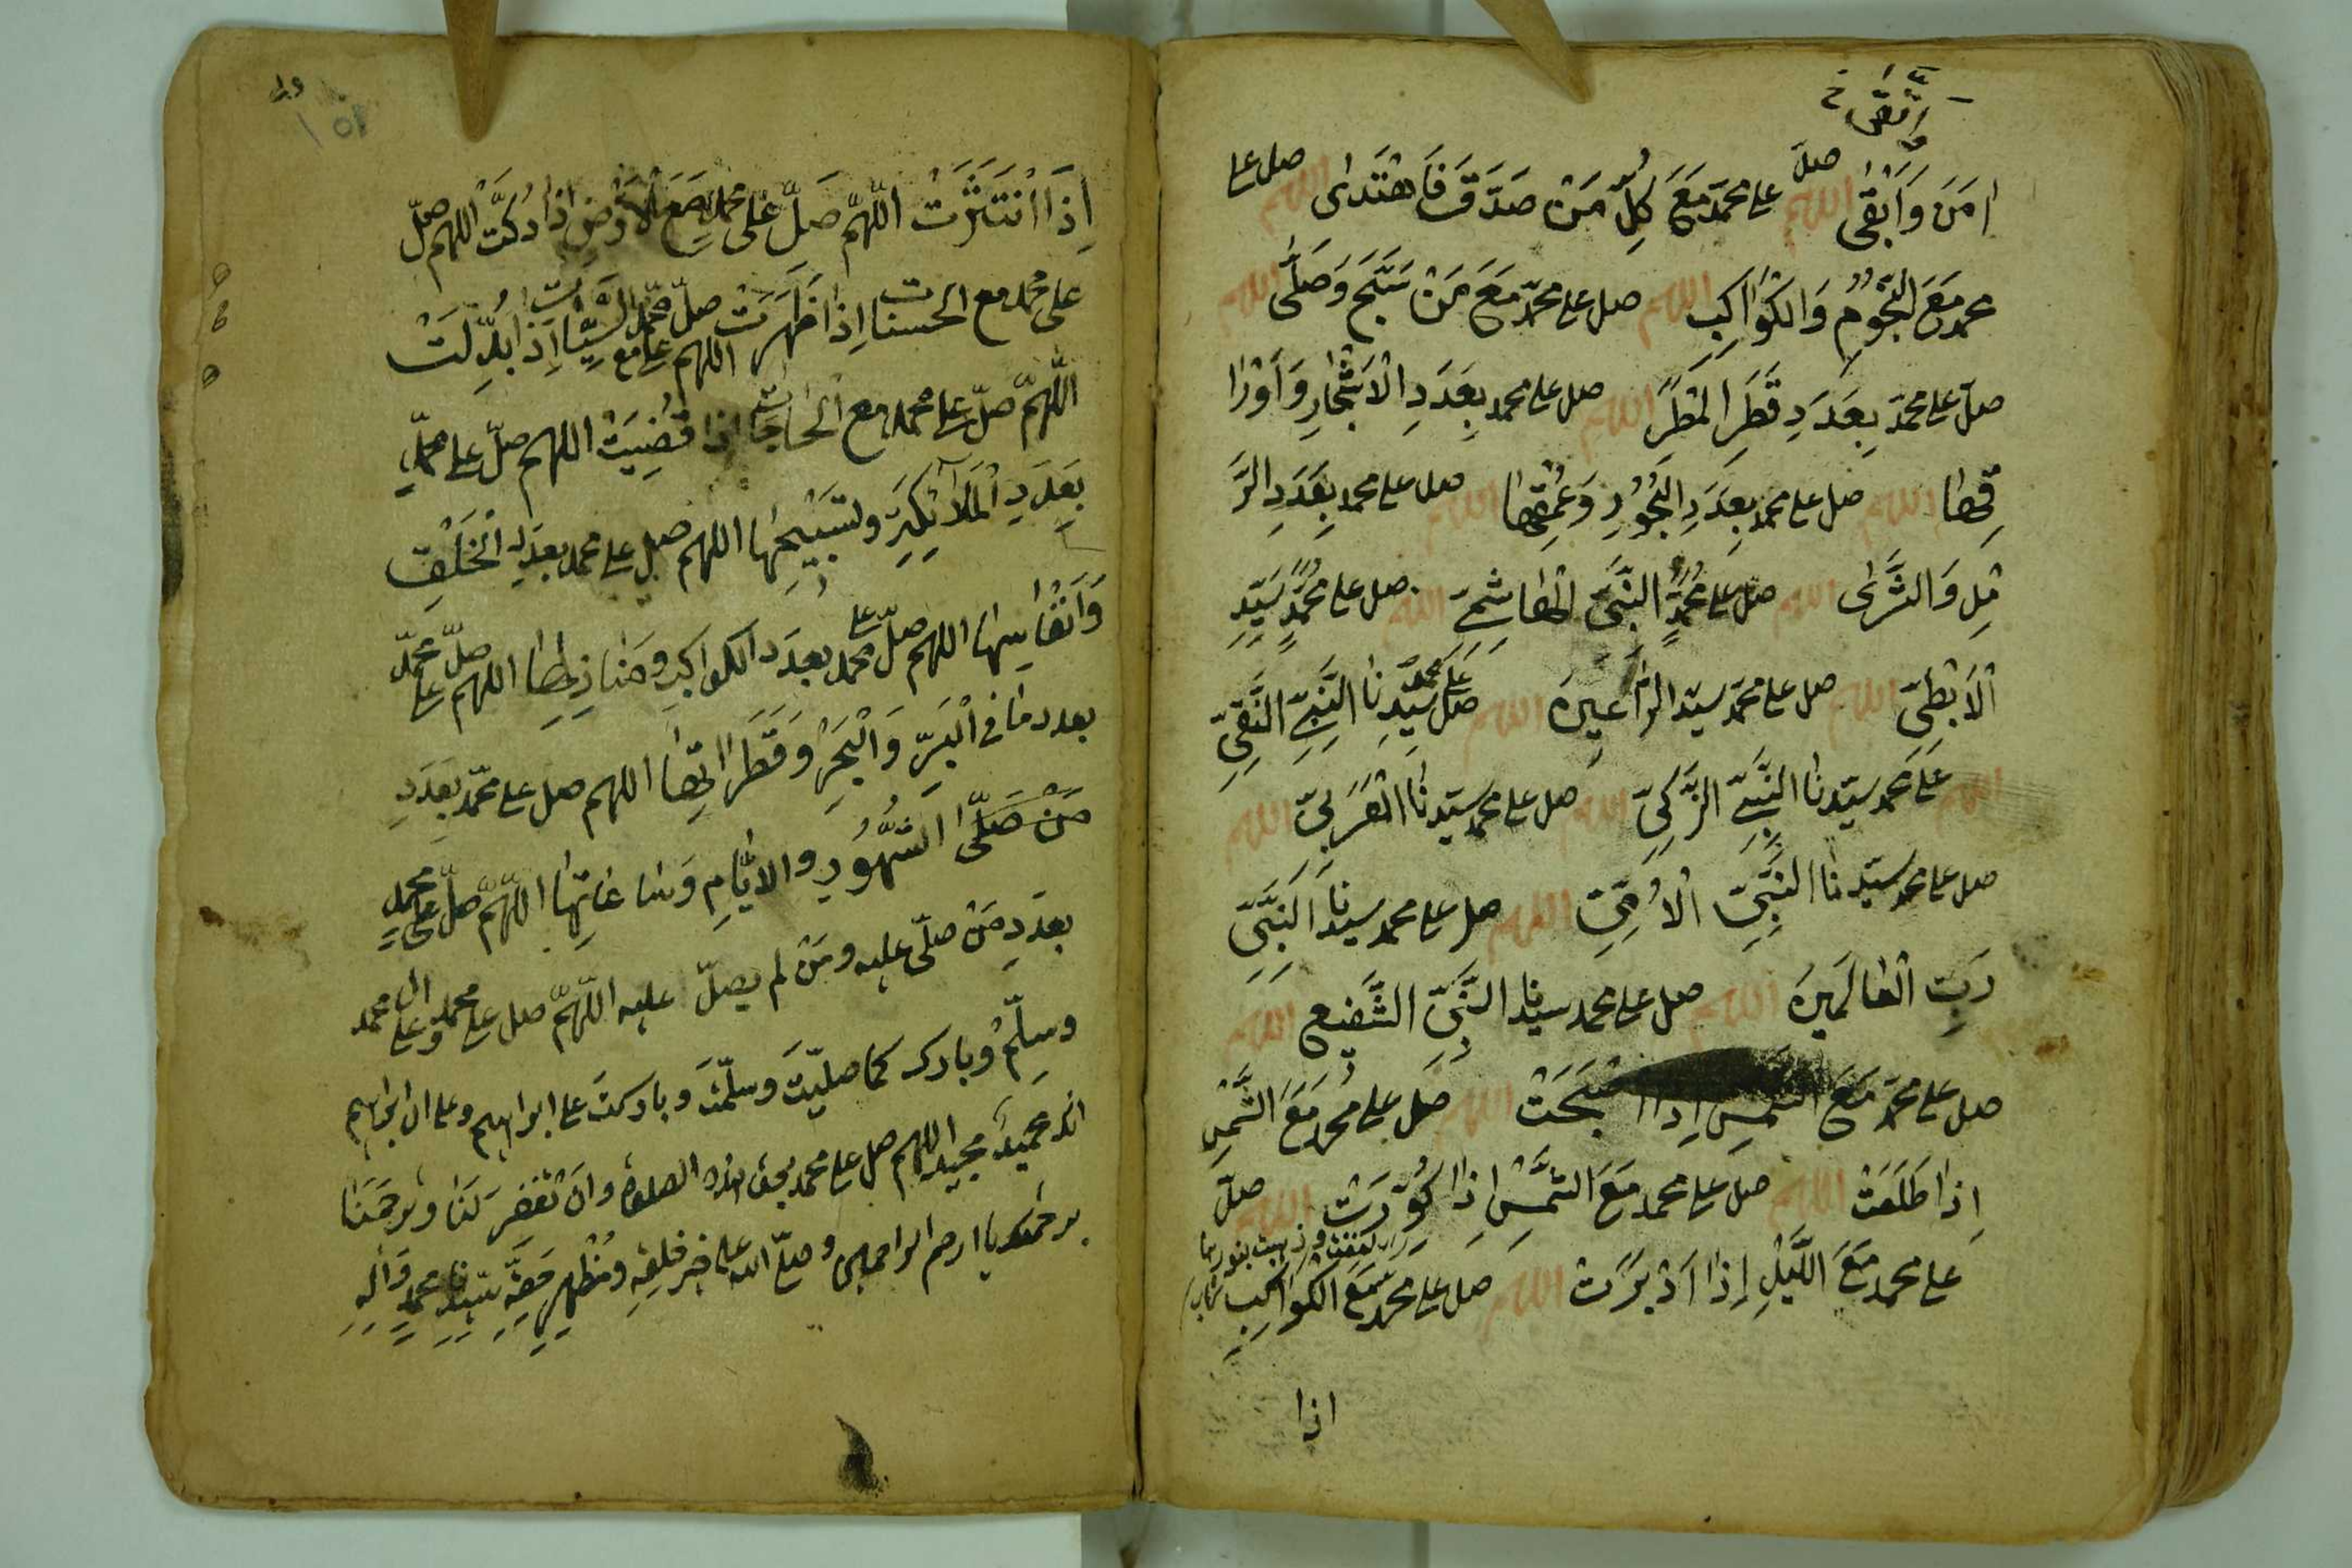 واتقى خ
امَنَ وَاَبْقٰى اللهم صلّ على محمّد مَعَ كلِّ مَنْ صَدَّقَ فَاهْتَدٰى اللهم صل على
محمد مَعَ النُّجُوْمِ وَالكَوَاكِبِ اللهم صل على محمّد مَعَ مَنْ سَبَّحَ وَصَلّٰى اللهم
صل على محمّد بِعَدَدِ قَطَرِ المَطَرِ اللهم صل على محمد بِعَدَدِ الْاَشْجَارِ وَاَوْرَا
قِهَا اللهم صل على محمد بِعَدَدِ البُحُوْرِ وَعُمْقِهَا اللهم صل على محمد بِعَدَدِ الرَّ
مْلِ وَالثَّرٰى اللهم صل على مُحمّدٍ النَّبِىِّ الْهَاشِمِىِّ اللهم صل على محمّدٍ سَيِّدِ
الْاَبْطَحِىِّ اللهم صل على محمّد سيّد الرّٰاعِيْنَ اللهم صل على محمّد سَيِّدِنَا النَّبِىِّ النَّقِىِّ
اللهم على محمد سيّدنا النَّبِىِّ الزَّكِىِّ اللهم صل على محمد سيّدنا العَرَبِىِّ اللهم
صل على محمد سيّدنا النَّبِىِّ الْاُمِّىِّ اللهم صل على محمد سيدنا النَّبِىِّ
رَبِّ العَالَمِيْنَ اللهم صل على محمد سيدنا النَّبِىِّ الشَّفِيْعِ اللهم
صل على محمّد مَعَ الشَّمْسِ اِذَا اَصْبَحَتْ اللهم صل على محمد مَعَ الشَّمْسِ
اِذَا طَلَعَتْ اللهم صل على محمد مَعَ الشَّمْسِ اِذَا كُوِّرَتْ اللهم صلّ
على محمد مَعَ اللَّيْلِ اِذَا اَدْبَرَتْ اللهم صل على محمد مَعَ الكَوَاكِبِ
اذا
اِذَا انْتَثَرَتْ اللّٰهمّ صَلِّ عَلٰى محمد مَعَ الْاَرْضِ اِذَا دُكَّتْ اللهم صلّ
على محمد مع الحسنات اِذَا ظَهَرَتْ اللهم صلّ على محمّد مع السَّيِّاٰتِ اِذَا بُدِّلَتْ
اللّٰهمّ صلّ على محمد مع الحَاجَات اِذَا قُضِيَتْ اللهم صلّ على محمّد
بِعَدَدِ المَلَائِكَةِ وتسْبِيْحِهَا اللهم صل على محمد بعَدَدِ الخَلْقِ
وَاَنْفَاسِهَا اللهم صلّ على محمد بِعَدَد الكواكب ومَنَازِلِهَا اللهم صلّ على محمّد
بعدد مَا فى الْبَرِّ وَالْبَحْرِ وقَطَرَاتِهَا اللهم صل على محمّد بِعَدَدِ
مَنْ صَلّٰى الشُّهُوْرِ والايَّامِ وَسَاعَاتِهَا اللّٰهمّ صلّ على محمدٍ
بعَدَدِ مَنْ صلّى عليه ومَنْ لم يصلّ عليه اللّٰهمّ صل على محمد وعلى ال محمد
وسلّمْ وبارك كما صلّيتَ وسلّمْتَ وباركتَ على ابراهيم وعلى ال ابراهيم
انك حَمِيْدٌ مجيد اللهم صل على محمد بحق هذه الصلوة وانْ تغْفِرَ لَنَا وترحَمَنَا
برحمتك يا ارحم الراحمين وصلّى الله على خير خلقِهِ ومُظْهِرِ حَقِّهِ سيّدنا محمدٍ وَاٰلِهِ